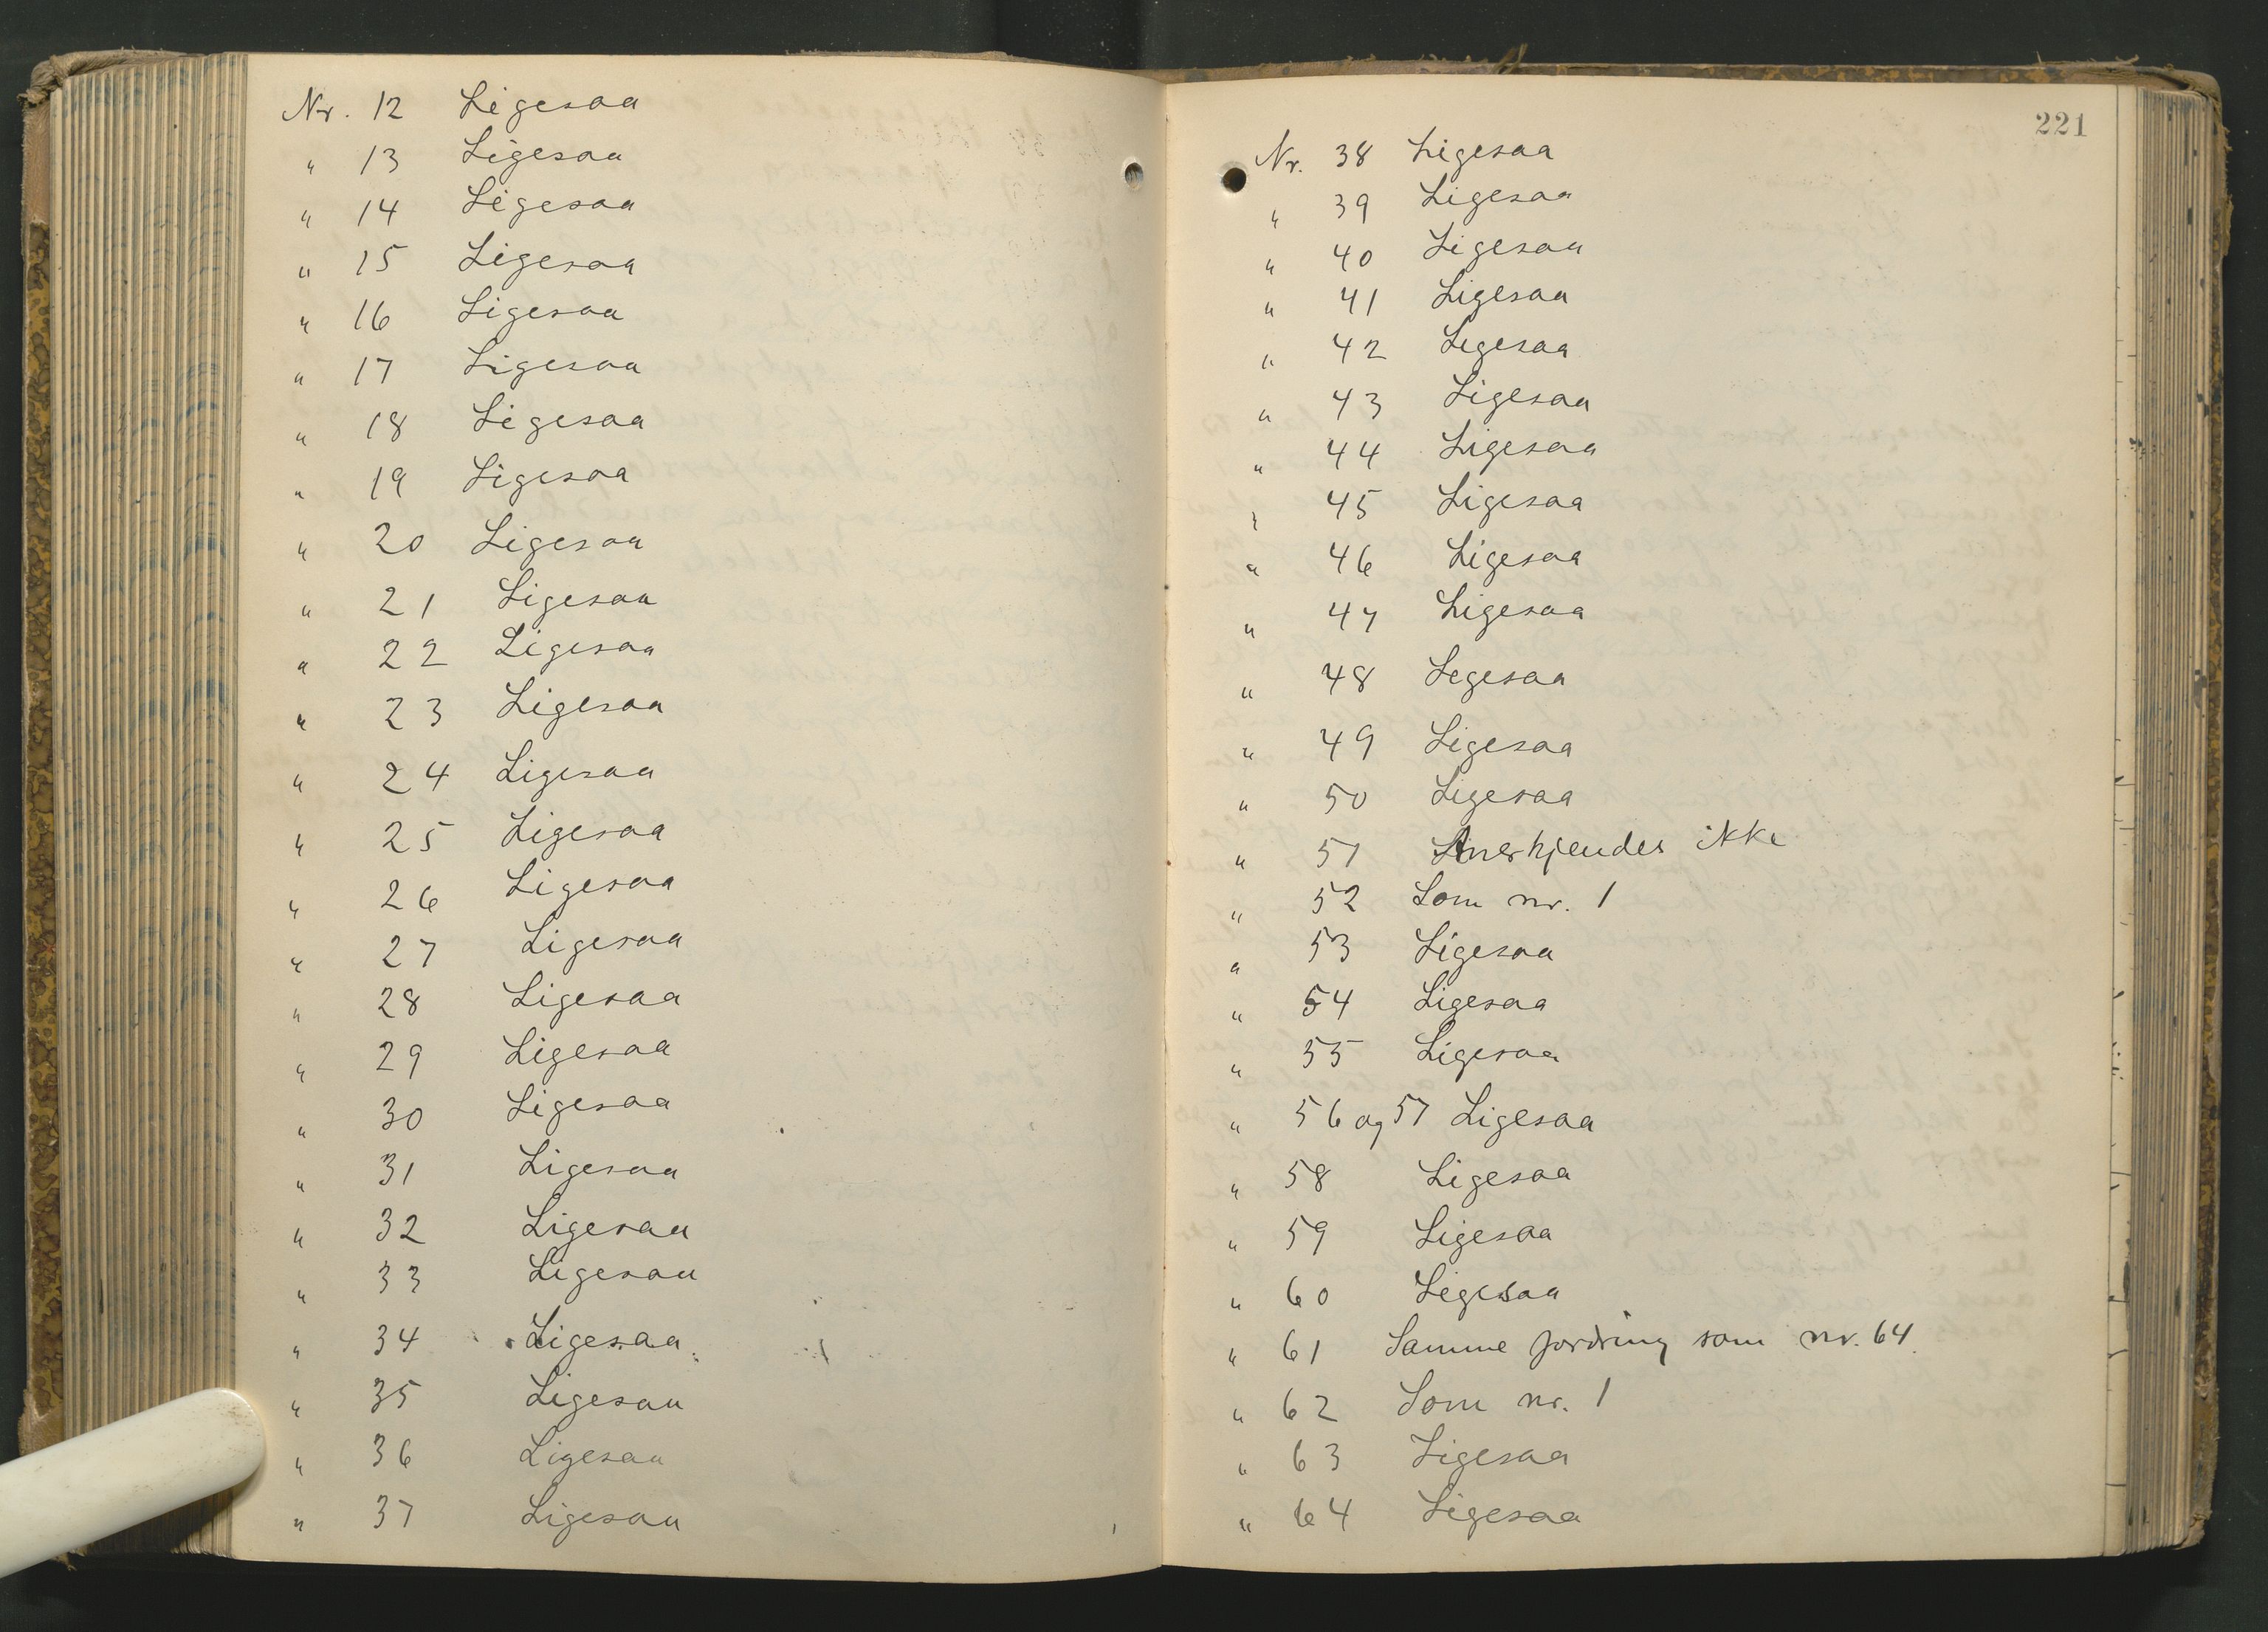 Nr. 12 Ligesaa
" 13 Ligesaa
" 14 Ligesaa
" 15 Ligesaa
" 16 Ligesaa
" 17 Ligesaa
" 18 Ligesaa
" 19 Ligesaa
" 20 Ligesaa
" 21 Ligesaa
" 22 Ligesaa
" 23 Ligesaa
" 24 Ligesaa
" 25 Ligesaa
" 26 Ligesaa
" 27 Ligesaa
" 28 Ligesaa
" 29 Ligesaa
" 30 Ligesaa
" 31 Ligesaa
" 32 Ligesaa
" 33 Ligesaa
" 34 Ligesaa
" 35 Ligesaa
" 36 Ligesaa
" 37 Ligesaa
221
Nr. 38 Ligesaa
" 39 Ligesaa
" 40 Ligesaa
" 41 Ligesaa
" 42 Ligesaa
" 43 Ligesaa
" 44 Ligesaa
" 45 Ligesaa
" 46 Ligesaa
" 47 Ligesaa
" 48 Ligesaa
" 49 Ligesaa
" 50 Ligesaa
" 51 Anerkjendes ikke
" 52 Som nr. 1
" 53 Ligesaa
" 54 Ligesaa
" 55 Ligesaa
" 56 og 57 Ligesaa
" 58 Ligesaa
" 59 Ligesaa
" 60 Ligesaa
" 61 Samme fordring som nr. 64.
" 62 Som nr. 1
" 63 Ligesaa
" 64 Ligesaa